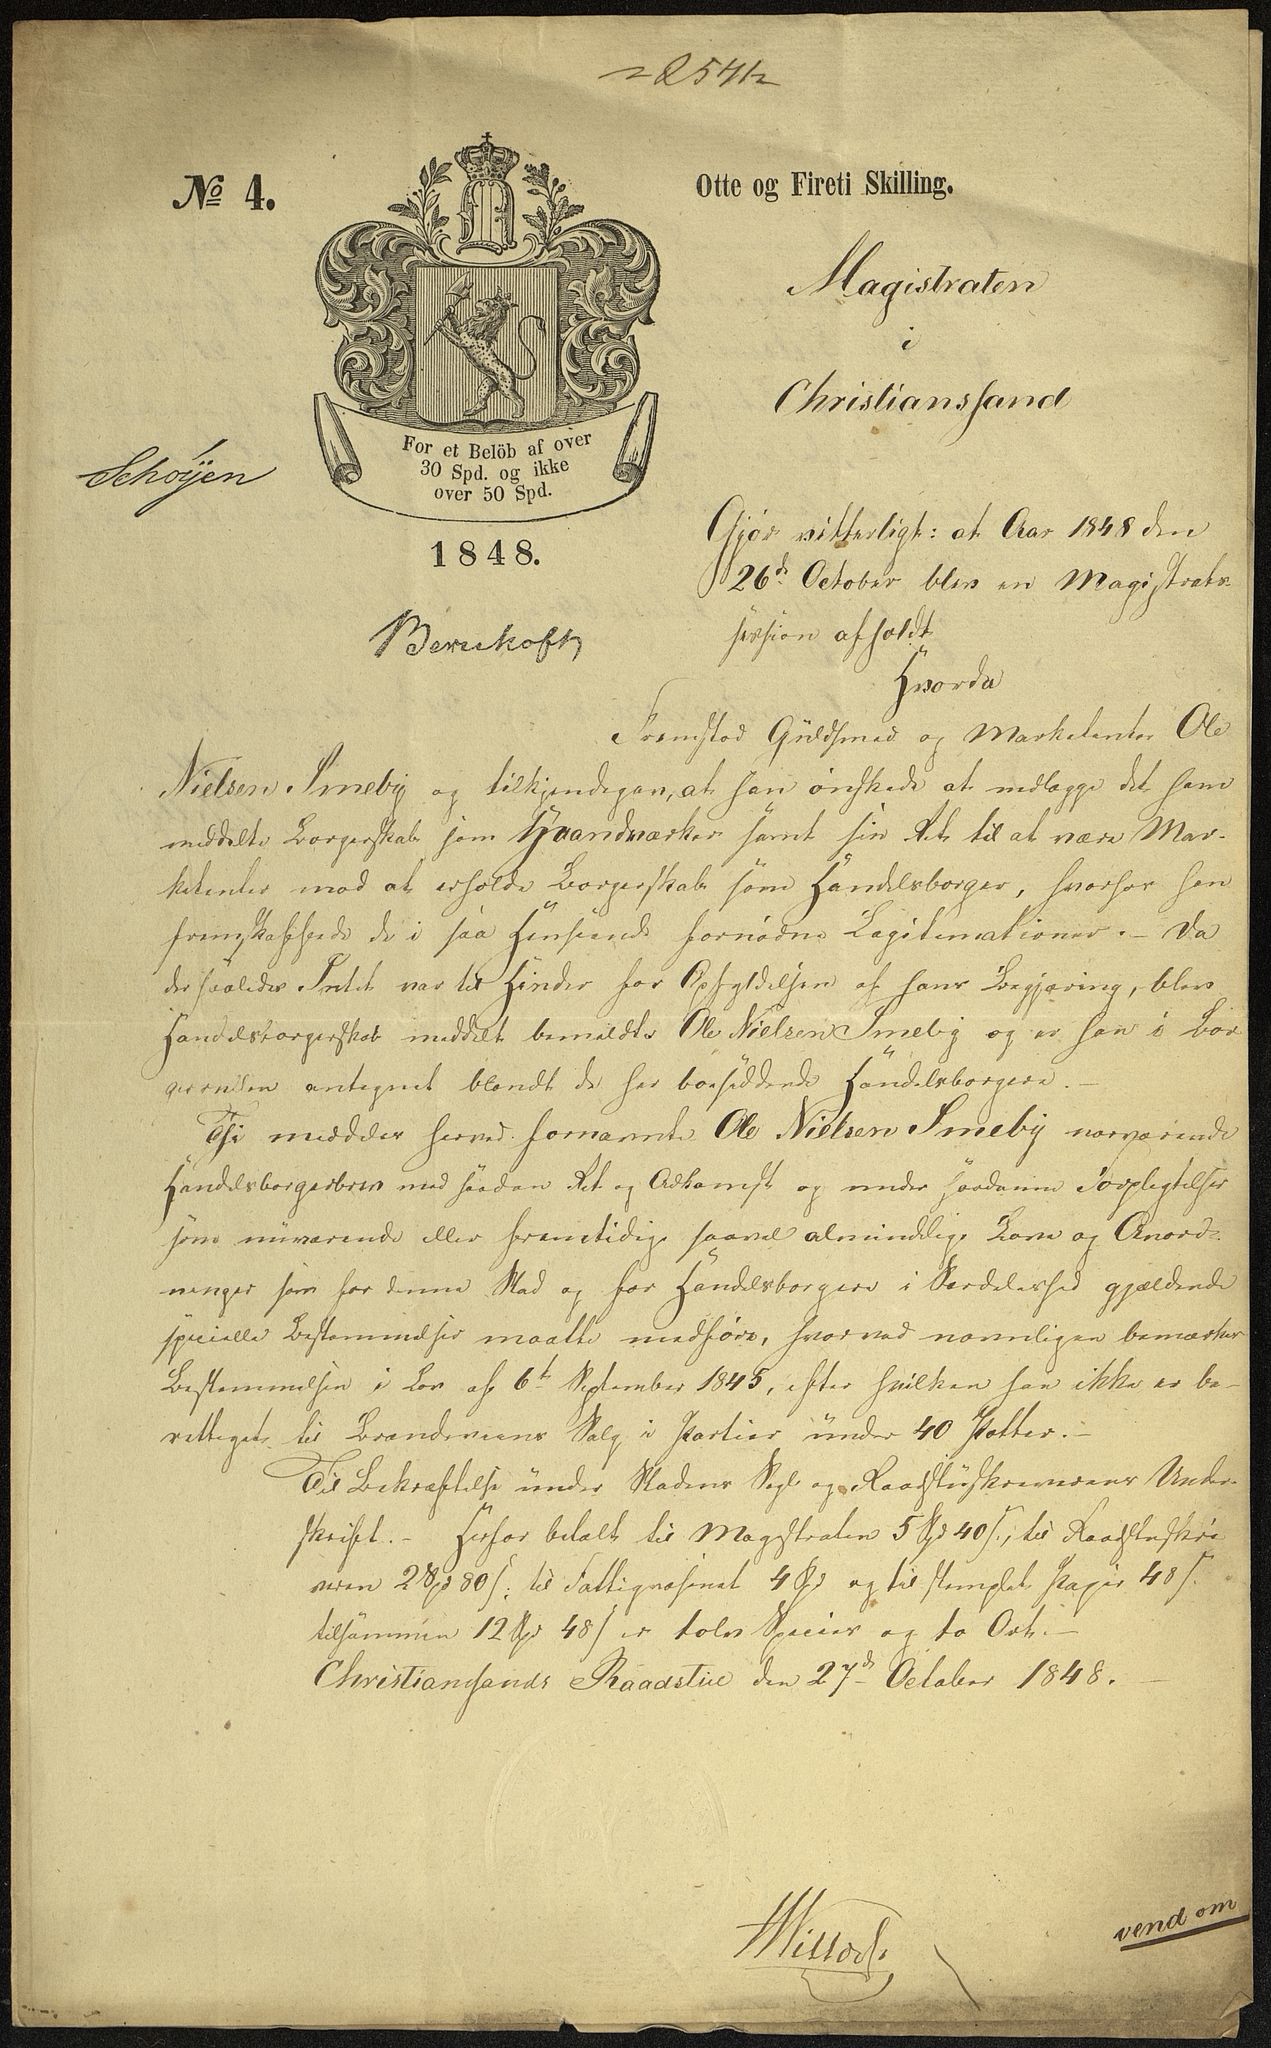 2541
No 4.
Otte og Fireti Skilling.
For et Belöb af over
30 Spd. og ikke
over 50 Spd.
1848.
Schøyen
Magistraten
i
Christianssand
Gjör vitterligt: at Aar 1848 den
26de October blev en Magistrats-
session afholdt
Hvorda
Fremstod Guldsmed og Marketenter Ole
Nielsen Smeby og tilkjendegav, at han önskede at nedlægge det ham
meddelte Borgerskab som Haandværker samt sin Ret til at være Mar-
ketenter mod at erholde Borgerskab som Handelsborger, hvorfor han
fremskaffede de i saa Henseende fornödne Legitimationer. – Da
der saaledes Intet var til Hinder for Opfyldelsen af hans Begjæring, blev
Handelsborgerskab meddelt bemeldte Ole Nielsen Smeby og er han i Bor-
gerrullen antegnet blandt de her boesiddende Handelsborgere. –
Thi meddeles herved fornævnte Ole Nielsen Smeby nærværende
Handelsborgerbrev med saadan Ret og Adkomst og under saadanne Forpligtelser
som nuværende eller fremtidige saavel almindelige Love og Anord-
ninger som for denne Stad og for Handelsborgere i Særdeleshed gjældende
specielle Bestemmelser maatte medföre, hvorved navnligen bemærkes
Bestemmelsen i Lov af 6te September 1845, efter hvilken han ikke er be-
rettiget til Brændeviins Salg i Partier under 40 Potter. –
Til Bekræftelse under Stadens Segl og Raadstueskriverens Under-
skrift. – Herfor betalt til Magistraten 5 Spd 40 s., til Raadstueskri-
veren 2 Spd 80 s., til Fattigvæsenet 4 Spd og til stemplet Papir 48 s.
tilsammen 12 Spd 48 s er tolv Species og to Ort. –
Christiansands Raadstue den 27de October 1848. –
vend om